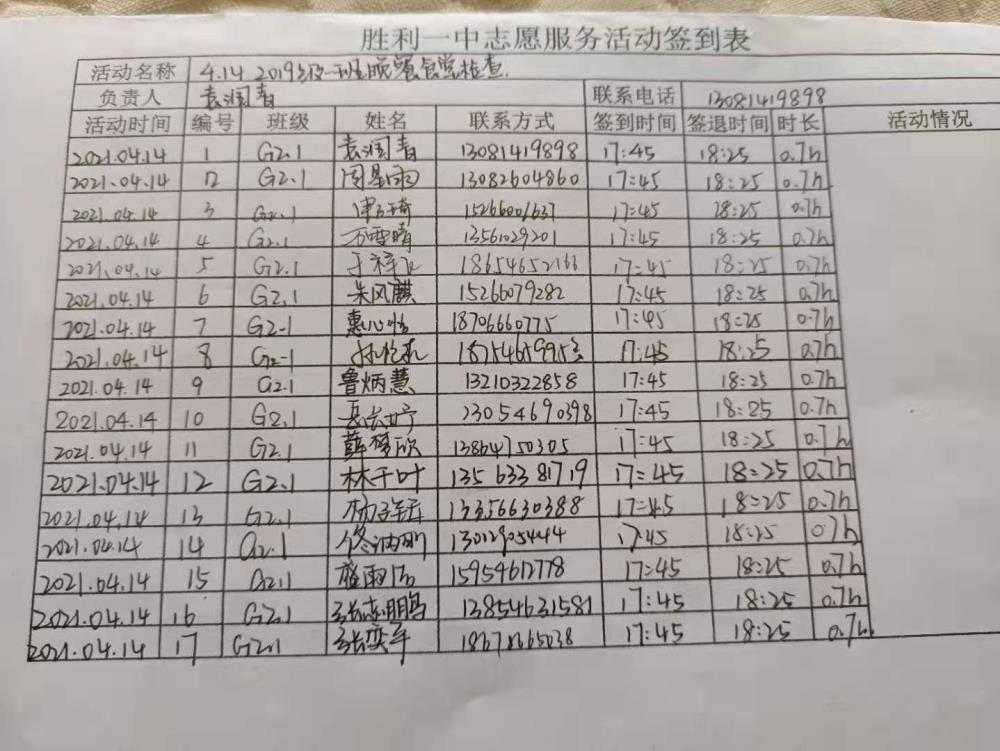 胜利一中志愿服务活动签到表
活动名称 4.14 2019级一班晚餐食堂检查.
负责人 袁润春 联系电话 13081419898
活动时间 编号 班级 姓名 联系方式 签到时间 签退时间 时长 活动情况
2021.04.14 1 G2.1 袁润春 13081419898 17:45 18:25 0.7h
2021.04.14 2 G2.1 周星雨 13082604860 17:45 18:25 0.7h
2021.04.14 3 G2.1 15266001637 17:45 18:25 0.7h
2021.04.14 4 G2.1 万雪晴 13561029201 17:45 18:25 0.7h
2021.04.14 5 G2.1 于梓飞 18654652166 17:45 18:25 0.7h
2021.04.14 6 G2.1 朱风麒 15266079282 17:45 18:25 0.7h
2021.04.14 7 G2-1 惠心怡 18706660775 17:45 18:25 0.7h
2021.04.14 8 G2-1 17:45 18:25 0.7h
2021.04.14 9 G2.1 鲁炳慧 13210322858 17:45 18:25 0.7h
2021.04.14 10 G2.1 23054690398 17:45 18:25 0.7h
2021.04.14 11 G2.1 薛梦欣 13864750305 17:45 18:25 0.7h
2021.04.14 12 G2.1 林千叶 13563381719 17:45 18:25 0.7h
2021.04.14 13 G2.1 13356630388 17:45 18:25 0.7h
2021.04.14 14 G2.1 17:45 18:25 0.7h
2021.04.14 15 G2.1 15954612778 17:45 18:25 0.7h
2021.04.14 16 G2.1 13854631581 17:45 18:25 0.7h
2021.04.14 17 G2.1 张奕军 18678665038 17:45 18:25 0.7h